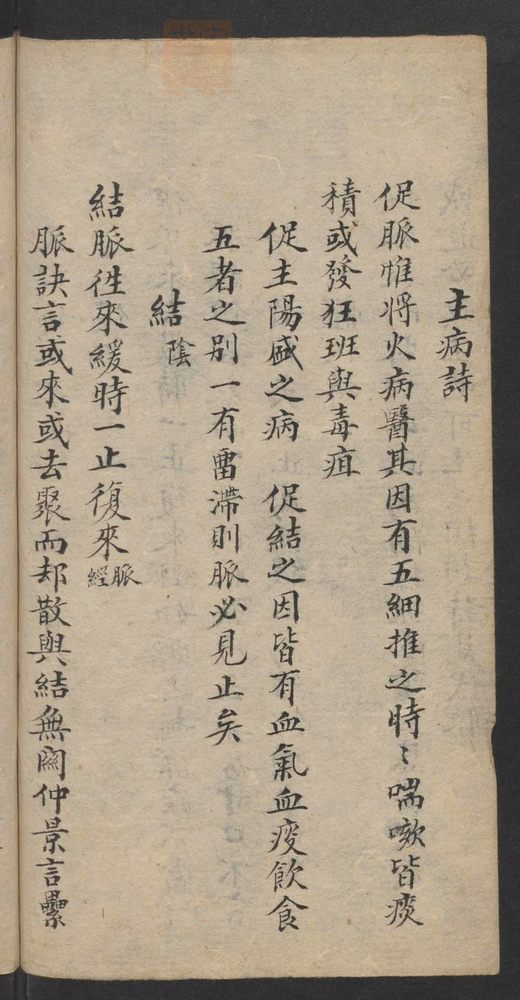 主病詩
促脈惟將火病醫其因有五細推之時〻喘嗽皆痰
積或發狂班與毒疽
促主陽盛之病　促結之因皆有血氣血痰飲食
五者之別一有畱滯則脈必見止矣
結陰
結脈徃來緩時一止復來脈經
脈訣言或來或去聚而却散與結無関仲景言纍